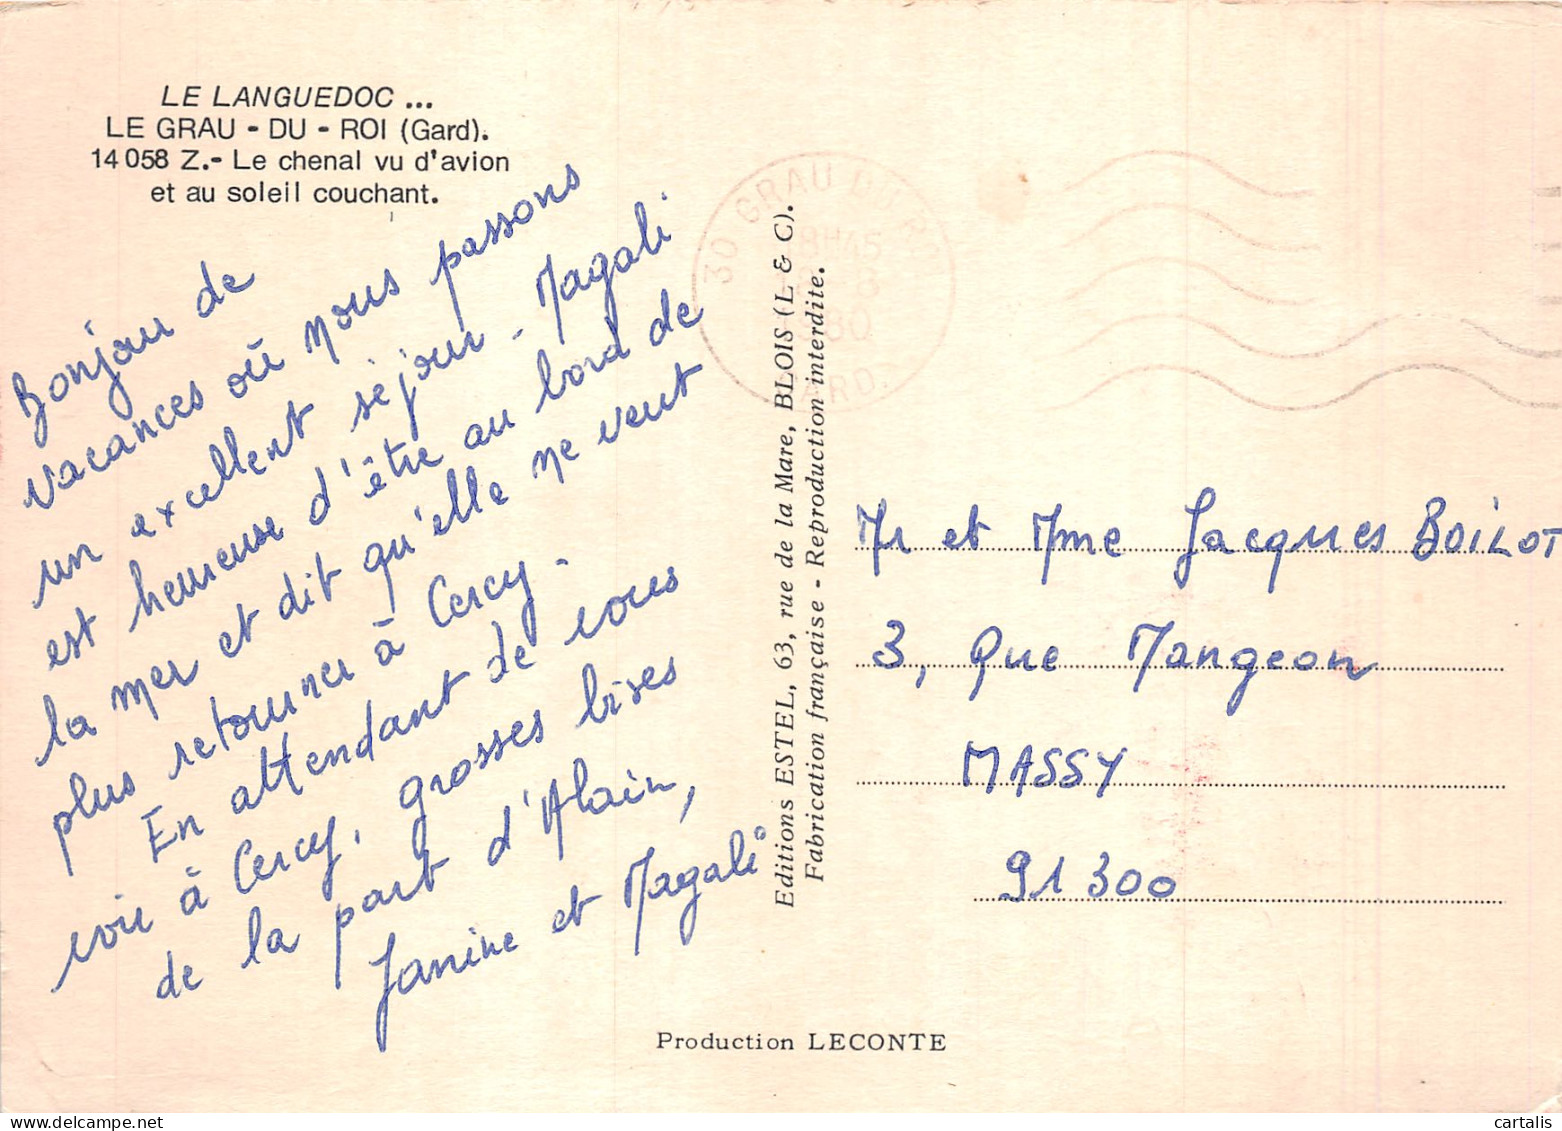 LE LANGUEDOC ...
LE GRAU - DU - ROI (Gard).
14 058 Z.- Le chenal vu d'avion
et au soleil couchant.
Bonjour de
vacances où nous passons
un excellent séjour - Magali
est heureuse d'être au bord de
la mer et dit qu'elle ne veut
plus retourner à Cercy.
En attendant de vous
voir à Cercy, grosses bises
de la part d'Alain,
Janine et Magali
30 GRAU DU ROI
18H45
18-8
1980
GARD.
Editions ESTEL, 63, rue de la Mare, BLOIS (L & C).
Fabrication française - Reproduction interdite.
Mr et Mme Jacques BOILOT
3, Rue Mangeon
MASSY
91 300
Production LECONTE
cartalis
www.delcampe.net